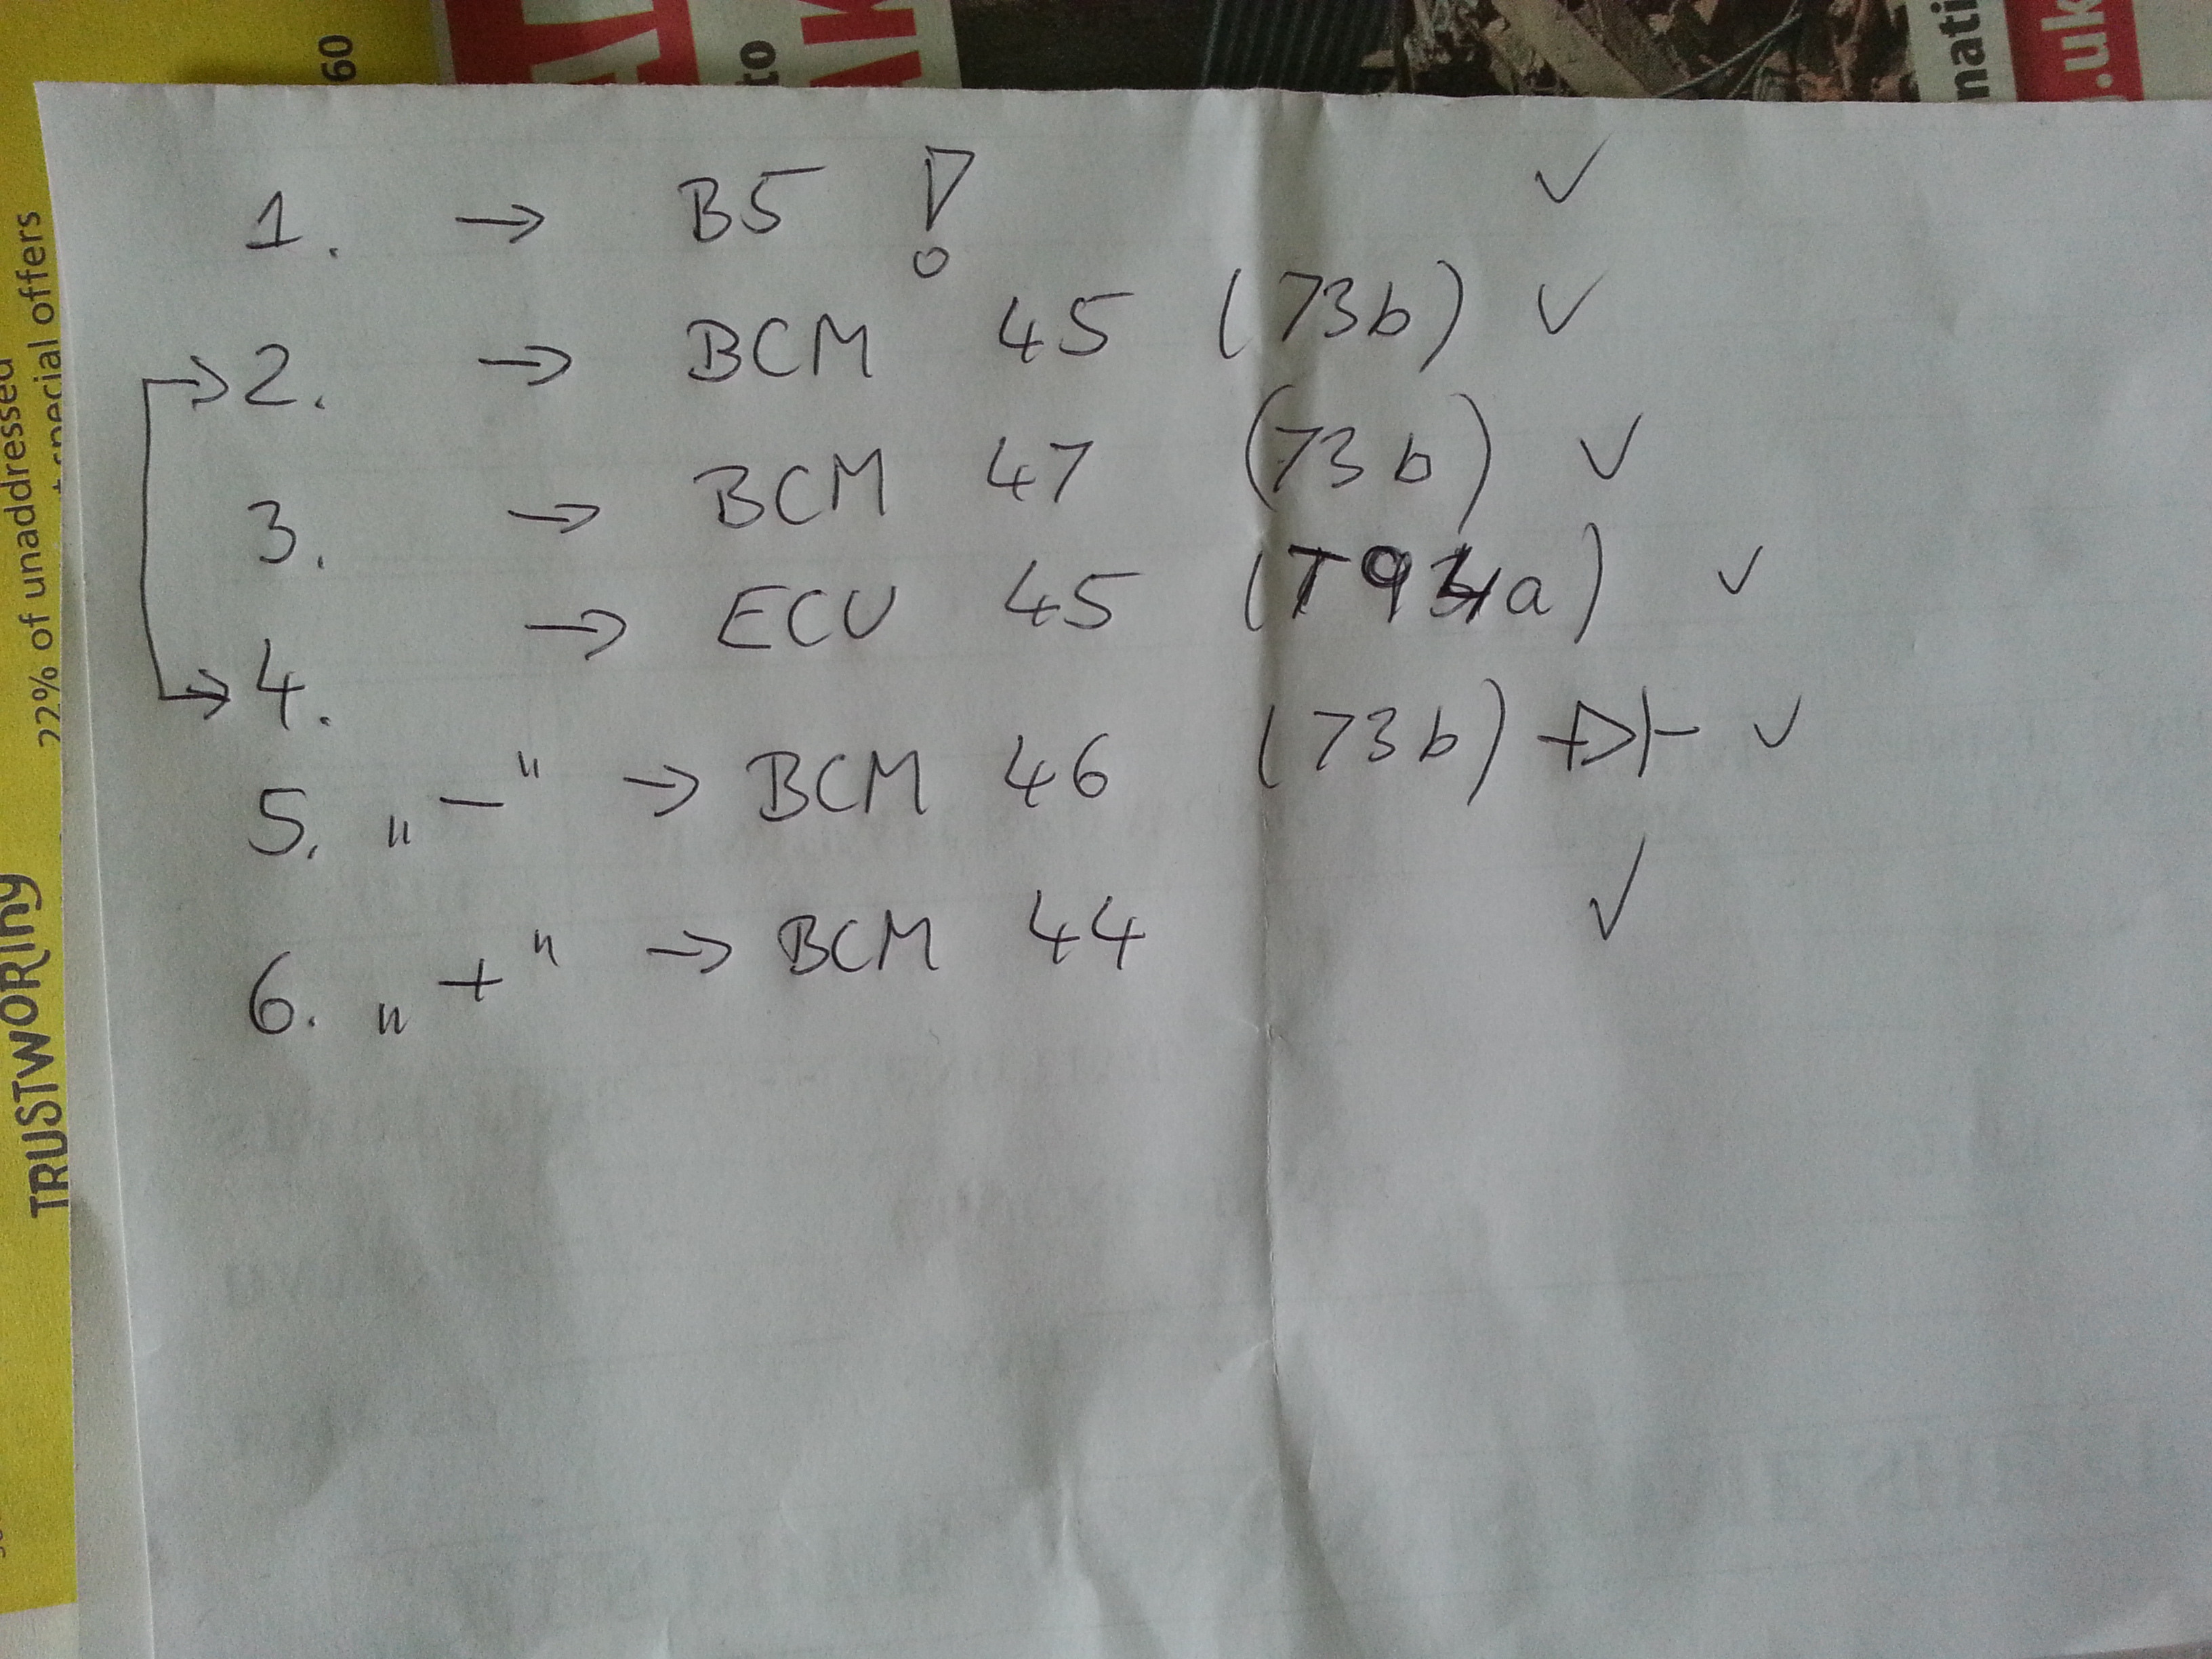 1. → B5 !  ✓
2. → BCM 45 (73b) ✓
3. → BCM 47 (73b) ✓
4. → ECU 45 (T94a) ✓
5. „ – " → BCM 46 (73b) ✓
6. „ + " → BCM 44 ✓
60
to
nati
.uk
22% of unaddressed
special offers
TRUSTWORTHY